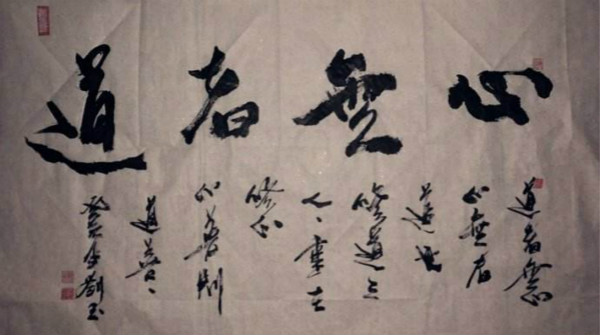 心無者道
道者無心
心無者
道也
修道之
人重在
修心
心善則
道善
劉玉